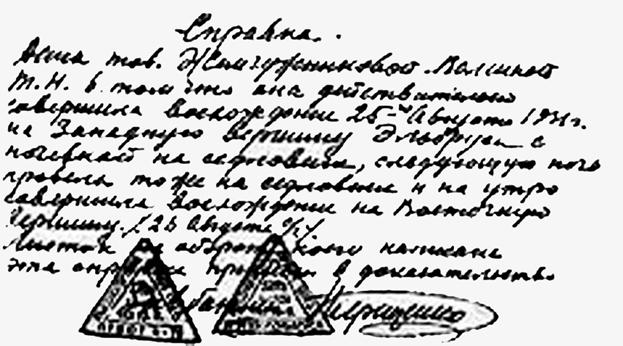 Справка.
Дана тов. Жемчужниковой-Калининой
М.Н. в том что она действительно
совершила восхождение 25-го Августа 1931г.
на Западную вершину Эльбруса с
ночевкой на седловине, следующую ночь
провела тоже на седловине и на утро
совершила восхождение на Восточную
вершину /26 Августа с/г/.
Листок на обороте коего написана
эта справка в доказательство